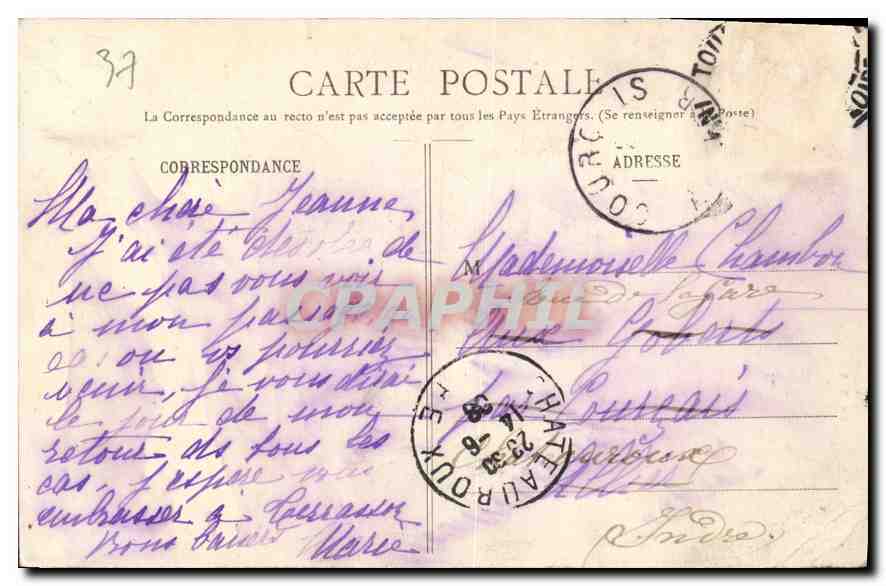 37
CARTE POSTALE
La Correspondance au recto n'est pas acceptée par tous les Pays Étrangers. (Se renseigner à la Poste)
CORRESPONDANCE
ADRESSE
Ma chère Jeanne,
J'ai été désolée de
ne pas vous voir
à mon passage
cas ou vs pourriez
venir, je vous dirai
le jour de mon
retour ds tous les
cas, j'espère vous
embrasser à Terrasson
Bons baisers Marie
M Mademoiselle Chambon
rue de la Gare
Rue
par Courçais
Chateauroux
Allier
Indre.
COURÇAIS
CHATEAUROUX GARE
23-30
14 -6
CPAPHIL